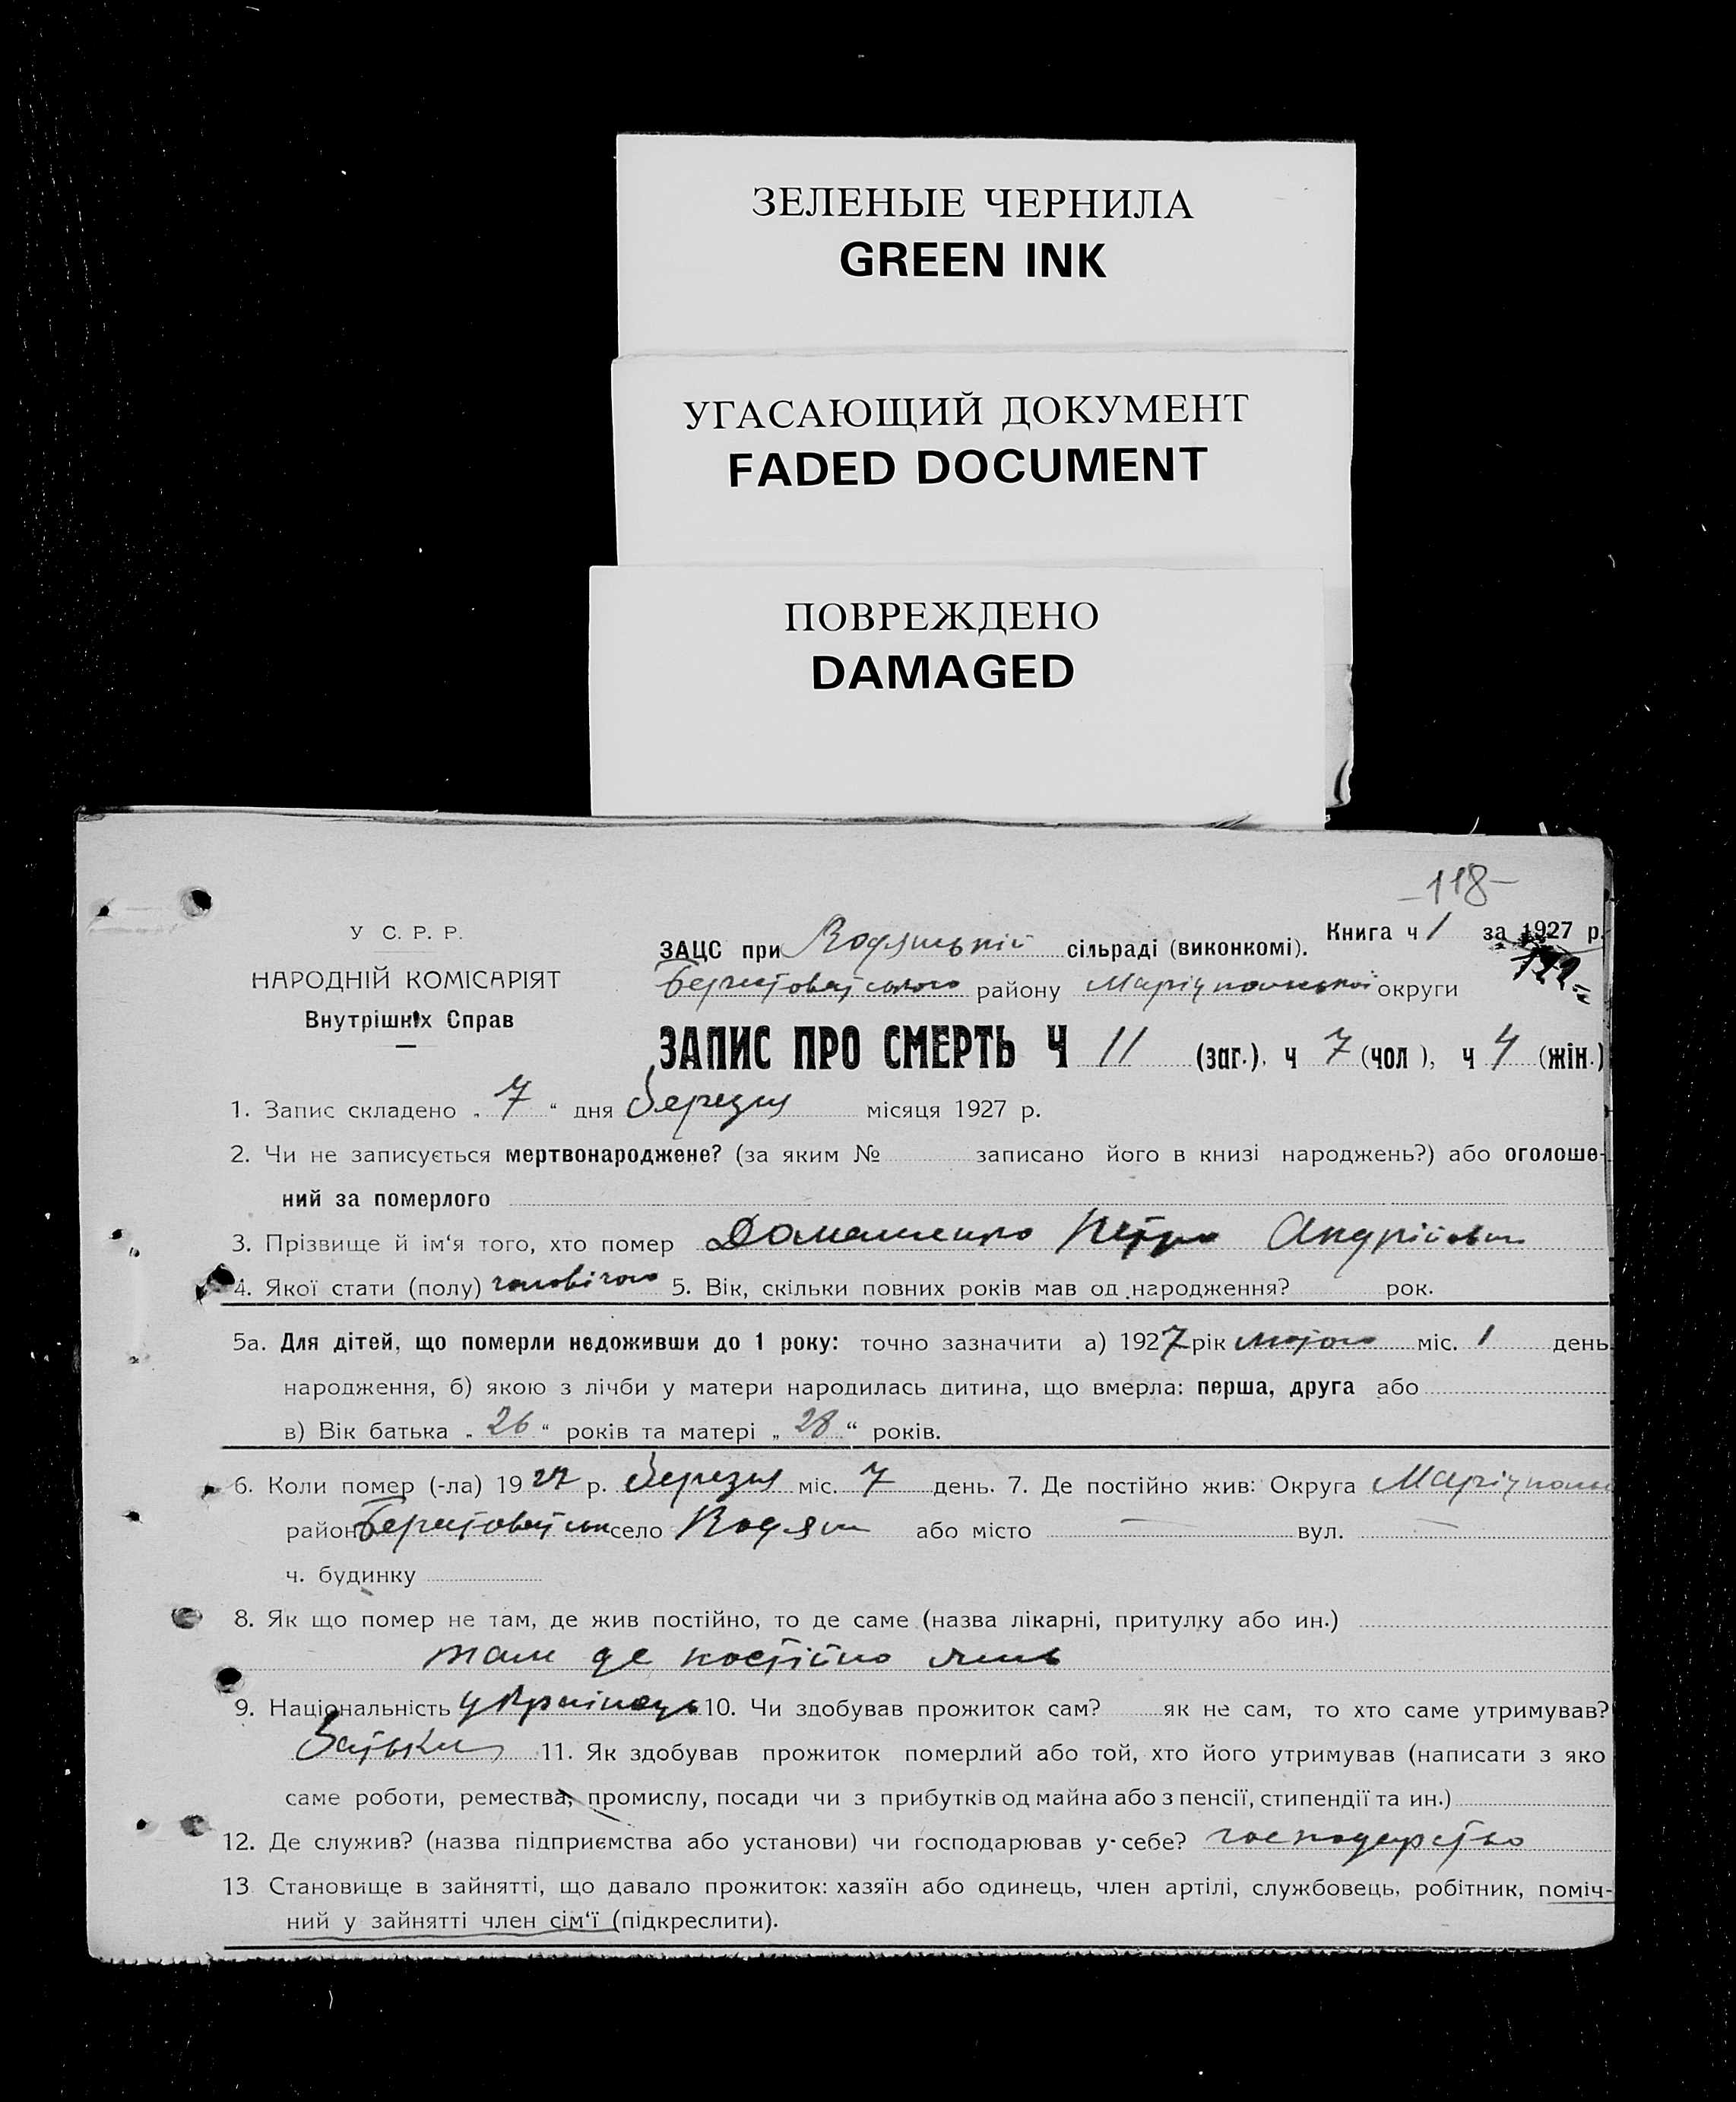 ЗЕЛЕНЫЕ ЧЕРНИЛА
GREEN INK
УГАСАЮЩИЙ ДОКУМЕНТ
FADED DOCUMENT
ПОВРЕЖДЕНО
DAMAGED
-118-
У С. Р. Р.
НАРОДНІЙ КОМІСАРІЯТ
Внутрішніх Справ
Книга ч 1 за 1927 р.
ЗАЦС при Водянській сільраді (виконкомі).
району Маріупольської округи
ЗАПИС ПРО СМЕРТЬ Ч 11 (заг.), ч 7 (чол ), ч 4 (жін.)
1. Запис складено „ 7 “ дня березня місяця 1927 р.
2. Чи не записується мертвонароджене? (за яким № записано його в книзі народжень?) або оголоше-
ний за померлого
3. Прізвище й ім'я того, хто помер Домашенко Петро Андрійович
4. Якої стати (полу) чоловічого 5. Вік, скільки повних років мав од народження? рок.
5а. Для дітей, що померли недоживши до 1 року: точно зазначити а) 1927 рік лютого міс. 1 день
народження, б) якою з лічби у матери народилась дитина, що вмерла: перша, друга або
в) Вік батька „ 26 “ років та матері „ 28 “ років.
6. Коли помер (-ла) 1927 р. березня міс. 7 день. 7. Де постійно жив: Округа Маріуполь
район село Водян або місто — вул. —
ч. будинку
8. Як що помер не там, де жив постійно, то де саме (назва лікарні, притулку або ин.)
там де постійно жив
9. Національність українець 10. Чи здобував прожиток сам? як не сам, то хто саме утримував?
Батьки 11. Як здобував прожиток померлий або той, хто його утримував (написати з яко
саме роботи, ремества, промислу, посади чи з прибутків од майна або з пенсії, стипендії та ин.)
12. Де служив? (назва підприємства або установи) чи господарював у-себе? господарство
13 Становище в зайнятті, що давало прожиток: хазяїн або одинець, член артілі, службовець, робітник, поміч-
ний у зайнятті член сім'ї (підкреслити).